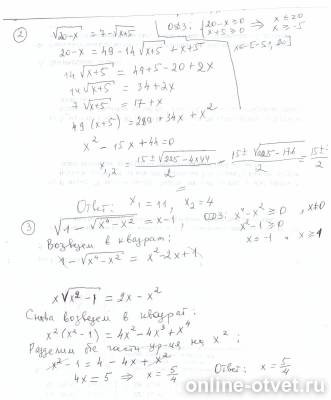 ② √20-x = 7-√x+5 ОДЗ: {20-x≥0 x+5≥0 ⇒ x≤20 x≥-5
20-x = 49-14√x+5 + x+5 x∈[-5; 20]
14√x+5 = 49+5-20+2x
14√x+5 = 34+2x
7√x+5 = 17+x
49(x+5) = 289+34x+x²
x²-15x+44=0
x₁,₂ = 15±√225-4×44 / 2 = 15±√225-176 / 2 = 15±
Ответ: x₁=11, x₂=4
③ √1-√x⁴-x² = x-1, ОДЗ: x⁴-x²≥0, x≠0
Возведем в квадрат: x²-1≥0
1-√x⁴-x² = x²-2x+1 x=-1 x≥1
x√x²-1 = 2x-x²
Снова возведем в квадрат:
x²(x²-1) = 4x²-4x³+x⁴
Разделим обе части ур-ия на x²;
x²-1=4-4x+x²
4x=5 ⇒ x=5/4 Ответ: x=5/4
online-otvet.ru